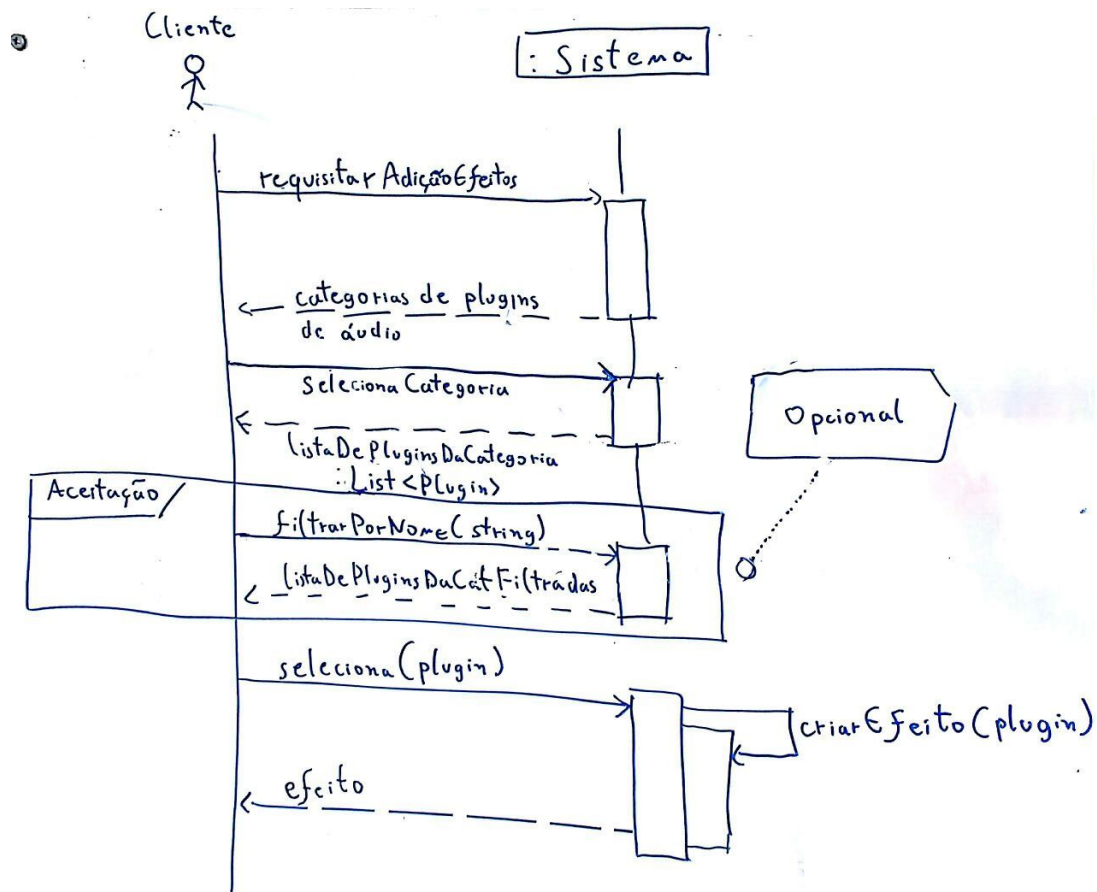 Cliente
: Sistema
requisitarAdiçãoEfeitos
categorias de plugins
de áudio
selecionaCategoria
listaDePluginsDaCategoria
: List<Plugin>
Opcional
Aceitação
filtrarPorNome(string)
listaDePluginsDaCatFiltradas
seleciona(plugin)
criarEfeito(plugin)
efeito